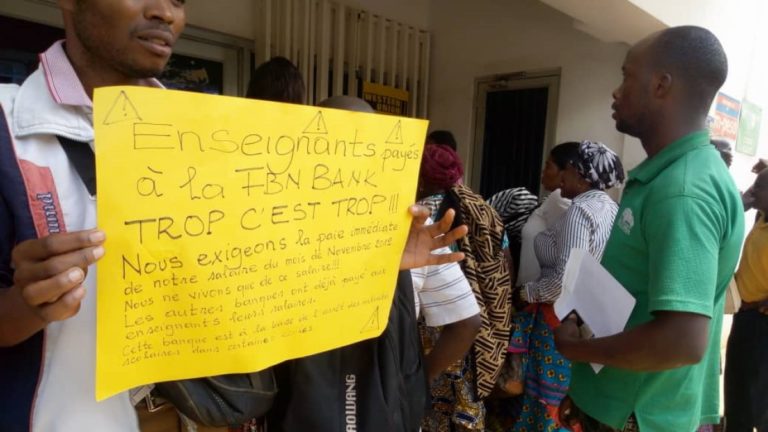 WESTERN
UNION
Enseignants payés
à la FBN BANK
TROP C'EST TROP !!!
Nous exigeons la paie immédiate
de notre salaire du mois de Novembre 2012
Nous ne vivons que de ce salaire!!!
Les autres banques ont déjà payé aux
enseignants leurs salaires.
Cette banque est à la base de l'arrêt des activités
scolaires dans certaines écoles